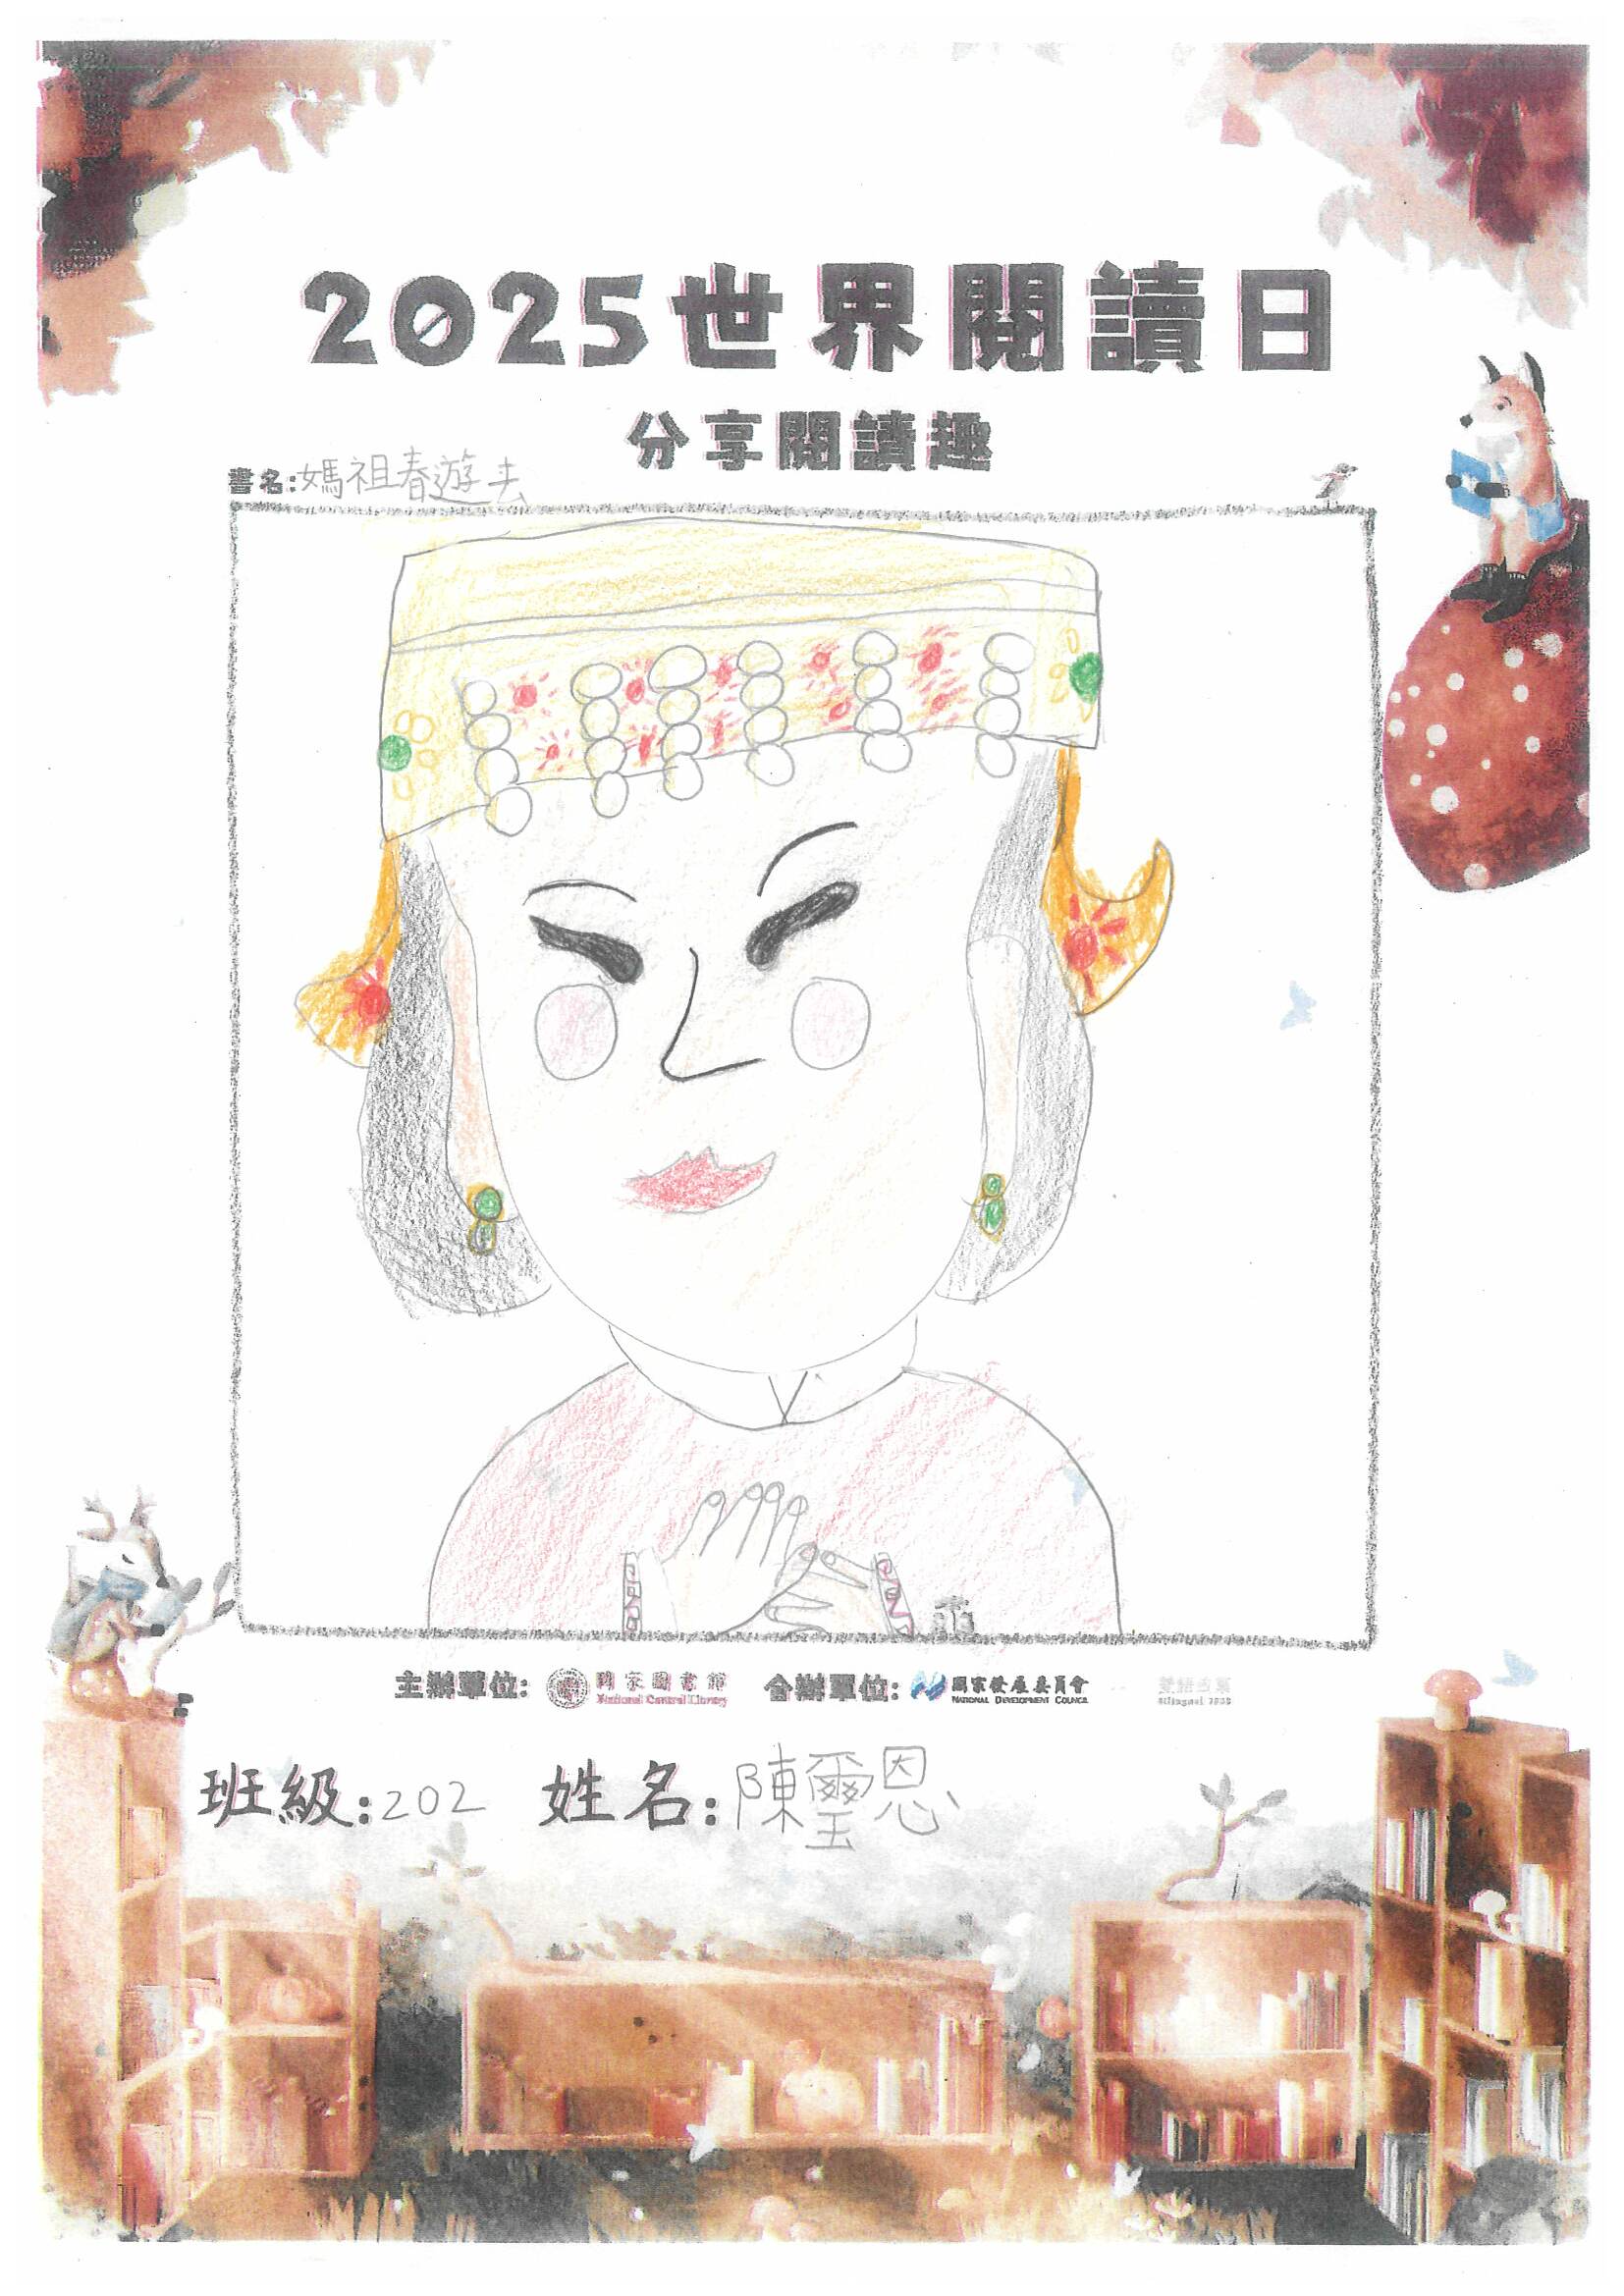 2025世界閱讀日
分享閱讀趣
書名:媽祖春遊去
主辦單位: 國家圖書館 National Central Library 合辦單位: 國家發展委員會 NATIONAL DEVELOPMENT COUNCIL
班級:202 姓名:陳璽恩